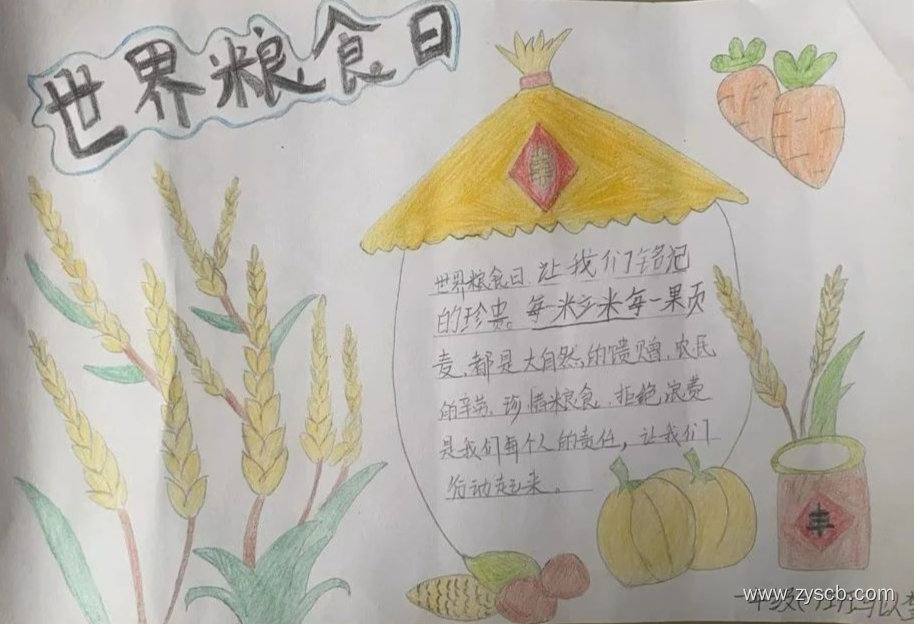 世界粮食日
丰
世界粮食日，让我们铭记
的珍贵。每一粒米每一果
麦，都是大自然的馈赠，农民
的辛劳，珍惜粮食，拒绝浪费
是我们每个人的责任，让我们
行动起来。
丰
www.zyscb.com
一年级